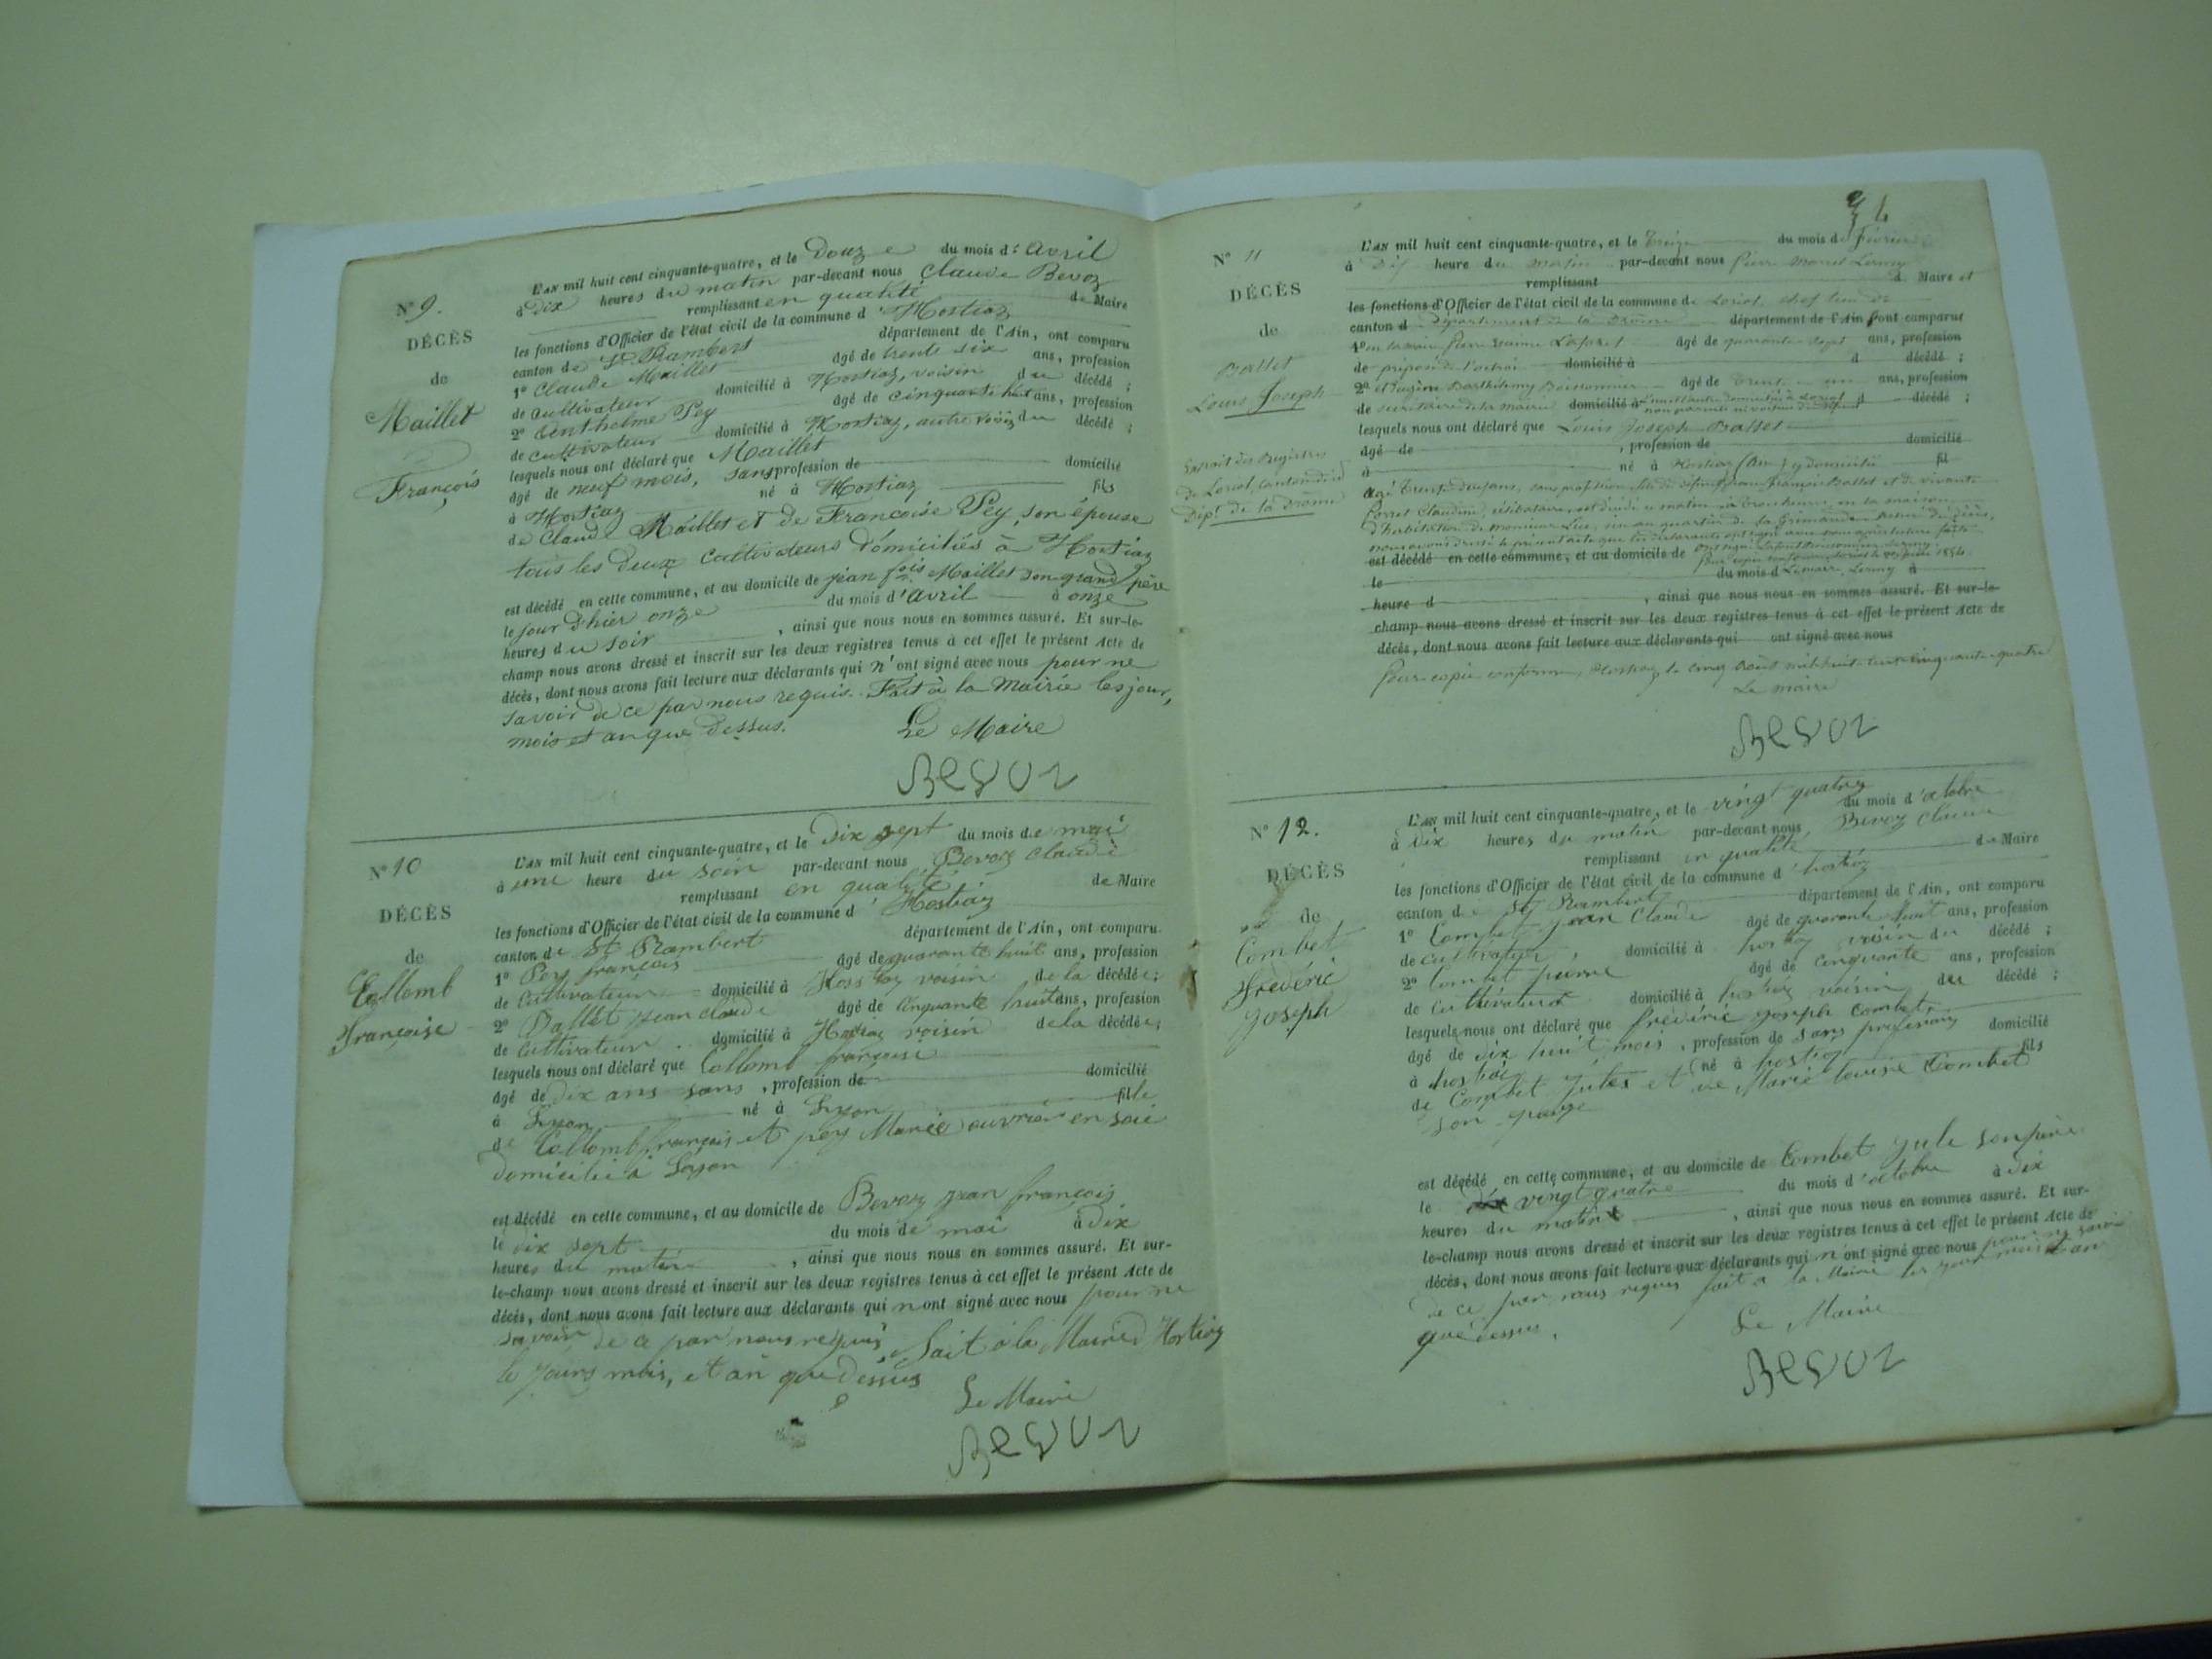 N° 9.
DÉCÈS
de
Maillet
François
L'AN mil huit cent cinquante-quatre, et le Douze du mois d'Avril
à Dix heures du matin par-devant nous Claude Bevoz
remplissant en qualité de Maire
les fonctions d'Officier de l'état civil de la commune d'Hostiaz
canton de St Rambert département de l'Ain, ont comparu
1° Claude Maillet âgé de trente six ans, profession
de cultivateur domicilié à Hostiaz, voisin du décédé ;
2° Anthelme Pey âgé de cinquante huit ans, profession
de cultivateur domicilié à Hostiaz, autre voisin du décédé ;
lesquels nous ont déclaré que Maillet
âgé de neuf mois, sans profession de domicilié
à Hostiaz né à Hostiaz fils
de Claude Maillet et de Françoise Pey, son épouse
tous les deux cultivateurs domiciliés à Hostiaz
est décédé en cette commune, et au domicile de jean fois Maillet son grand père
le jour d'hier onze du mois d'avril à onze
heures du soir , ainsi que nous nous en sommes assuré. Et sur-le-
champ nous avons dressé et inscrit sur les deux registres tenus à cet effet le présent Acte de
décès, dont nous avons fait lecture aux déclarants qui n'ont signé avec nous pour ne
savoir de ce par nous requis. Fait à la Mairie les jour,
mois et an que dessus.
Le Maire
Bevoz
N° 10
DÉCÈS
de
Collomb
Françoise
L'AN mil huit cent cinquante-quatre, et le Dix sept du mois de mai
à une heure du soir par-devant nous Bevoz Claude
remplissant en qualité de Maire
les fonctions d'Officier de l'état civil de la commune d'Hostiaz
canton de St Rambert département de l'Ain, ont comparu
1° Pey françois âgé de quarante huit ans, profession
de Cultivateur domicilié à Hostiaz voisin de la décédée ;
2° Ballet jean claude âgé de cinquante huit ans, profession
de Cultivateur domicilié à Hostiaz voisin de la décédée ;
lesquels nous ont déclaré que Collomb françoise
âgé de dix ans sans , profession de domicilié
à Lyon né à Lyon fille
de Collomb françois et pey Marie ouvrier en soie
domicilié à Lyon
est décédé en cette commune, et au domicile de Bevoz jean françois
le dix sept du mois de mai à dix
heures du matin , ainsi que nous nous en sommes assuré. Et sur-
le-champ nous avons dressé et inscrit sur les deux registres tenus à cet effet le présent Acte de
décès, dont nous avons fait lecture aux déclarants qui n'ont signé avec nous pour ne
savoir de ce par nous requis fait à la Mairie d'Hostiaz
le jours mois, et an que dessus
Le Maire
Bevoz
N° 11
DÉCÈS
de
Ballet
Louis Joseph
Extrait des Registres
de Loriol, canton
Dépt de la Drôme
L'AN mil huit cent cinquante-quatre, et le treize du mois de Février
à Dix heure du matin par-devant nous Pierre Marcel Lermy
remplissant d Maire et
les fonctions d'Officier de l'état civil de la commune de Loriol, chef lieu de
canton d département de la Drôme département de l'Ain sont comparus
âgé de quarante sept ans, profession
de préposé de l'octroi domicilié à d décédé ;
2° Eugène Barthélemy Boissonnier âgé de trente un ans, profession
de secrétaire de la mairie domicilié à d décédé ;
lesquels nous ont déclaré que Louis Joseph Ballet
âgé de , profession de domicilié
à né à Hostiaz (Ain) y domicilié fil
âgé trente deux ans, sans profession, fils de défunt jean françois Ballet et de vivante
Claudine, célibataire, est décédé ce matin à trois heures en la maison
d'habitation de monsieur
est décédé en cette commune, et au domicile de
le du mois d Lemaire, Lermy à
heure d , ainsi que nous nous en sommes assuré. Et sur-le-
champ nous avons dressé et inscrit sur les deux registres tenus à cet effet le présent Acte de
décès, dont nous avons fait lecture aux déclarants qui ont signé avec nous
Pour copie conforme, Hostiaz, le cinq Août mil huit cent cinquante quatre
Le maire
Bevoz
N° 12.
DÉCÈS
de
Combet
Frédéric
Joseph
L'AN mil huit cent cinquante-quatre, et le vingt quatre du mois d'octobre
à Dix heures du matin par-devant nous Bevoz Claude
remplissant en qualité de Maire
les fonctions d'Officier de l'état civil de la commune d'hostiaz
canton de St Rambert département de l'Ain, ont comparu
1° Combet jean Claude âgé de quarante huit ans, profession
de cultivateur, domicilié à hostiaz voisin du décédé ;
2° Combet pierre âgé de cinquante ans, profession
de cultivateur domicilié à hostiaz voisin du décédé ;
lesquels nous ont déclaré que frédéric joseph Combet,
âgé de dix huit mois , profession de sans profession domicilié
à hostiaz né à hostiaz fils
de Combet jules et de Marie louise Combet
son epouse
est décédé en cette commune, et au domicile de Combet jule son père
le vingt quatre du mois d'octobre à dix
heures du matin , ainsi que nous nous en sommes assuré. Et sur-
le-champ nous avons dressé et inscrit sur les deux registres tenus à cet effet le présent Acte de
décès, dont nous avons fait lecture aux déclarants qui n'ont signé avec nous pour ne savoir
de ce par nous requis fait a la Mairie les jour mois et an
que dessus.
Le Maire
Bevoz